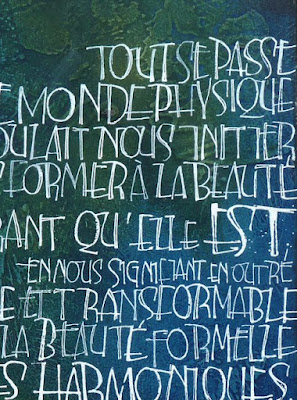 TOUT SE PASSE
E MONDE PHYSIQUE
OULAIT NOUS INITIER
FORMER À LA BEAUTÉ
RANT QU'ELLE EST
EN NOUS SIGNIFIANT EN OUTRE
E ET TRANSFORMABLE
LA BEAUTÉ FORMELLE
ES HARMONIQUES